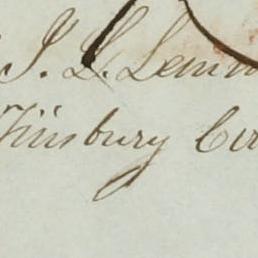 J. L. Lewin
Finsbury Cir